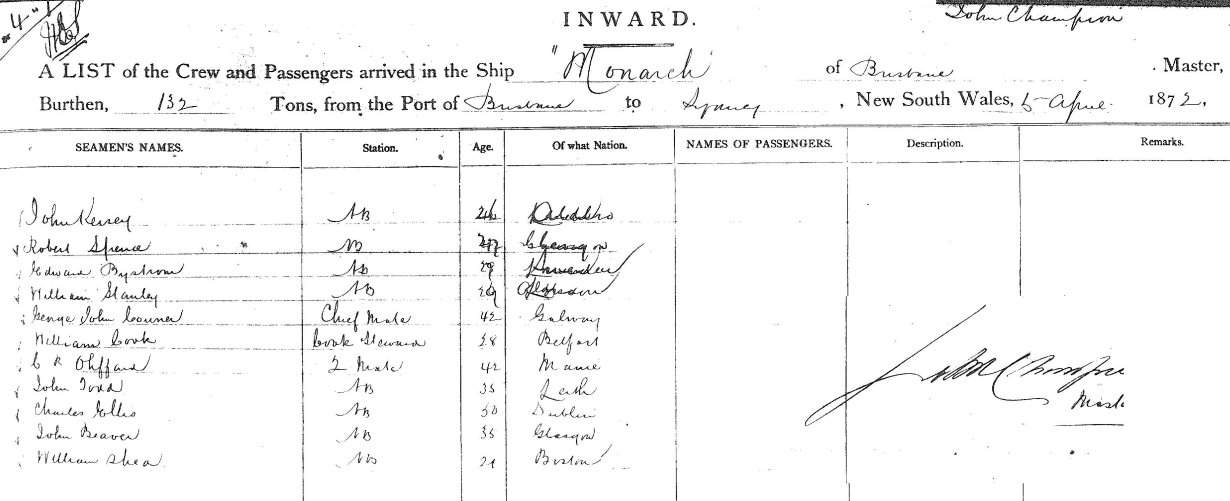 "4"
INWARD.
John Champion
A LIST of the Crew and Passengers arrived in the Ship "Monarch of Brisbane . Master,
Burthen, 132 Tons, from the Port of Brisbane to Sydney , New South Wales, 5 April 1872,
SEAMEN'S NAMES. Station. Age. Of what Nation. NAMES OF PASSENGERS. Description. Remarks.
John Kersey AB
Robert Spence AB Glasgow
Edward Bystrom AB
William Stanley AB
George John Chief Mate 42 Galway
William Cook Cook Steward 28 Belfast
C R 2 Mate 42
John Todd AB 35 Leith
Charles Ellis AB 30 Dublin
John Beaver AB 35 Glasgow
William Shea AB 21 Boston
John Champion
Mast